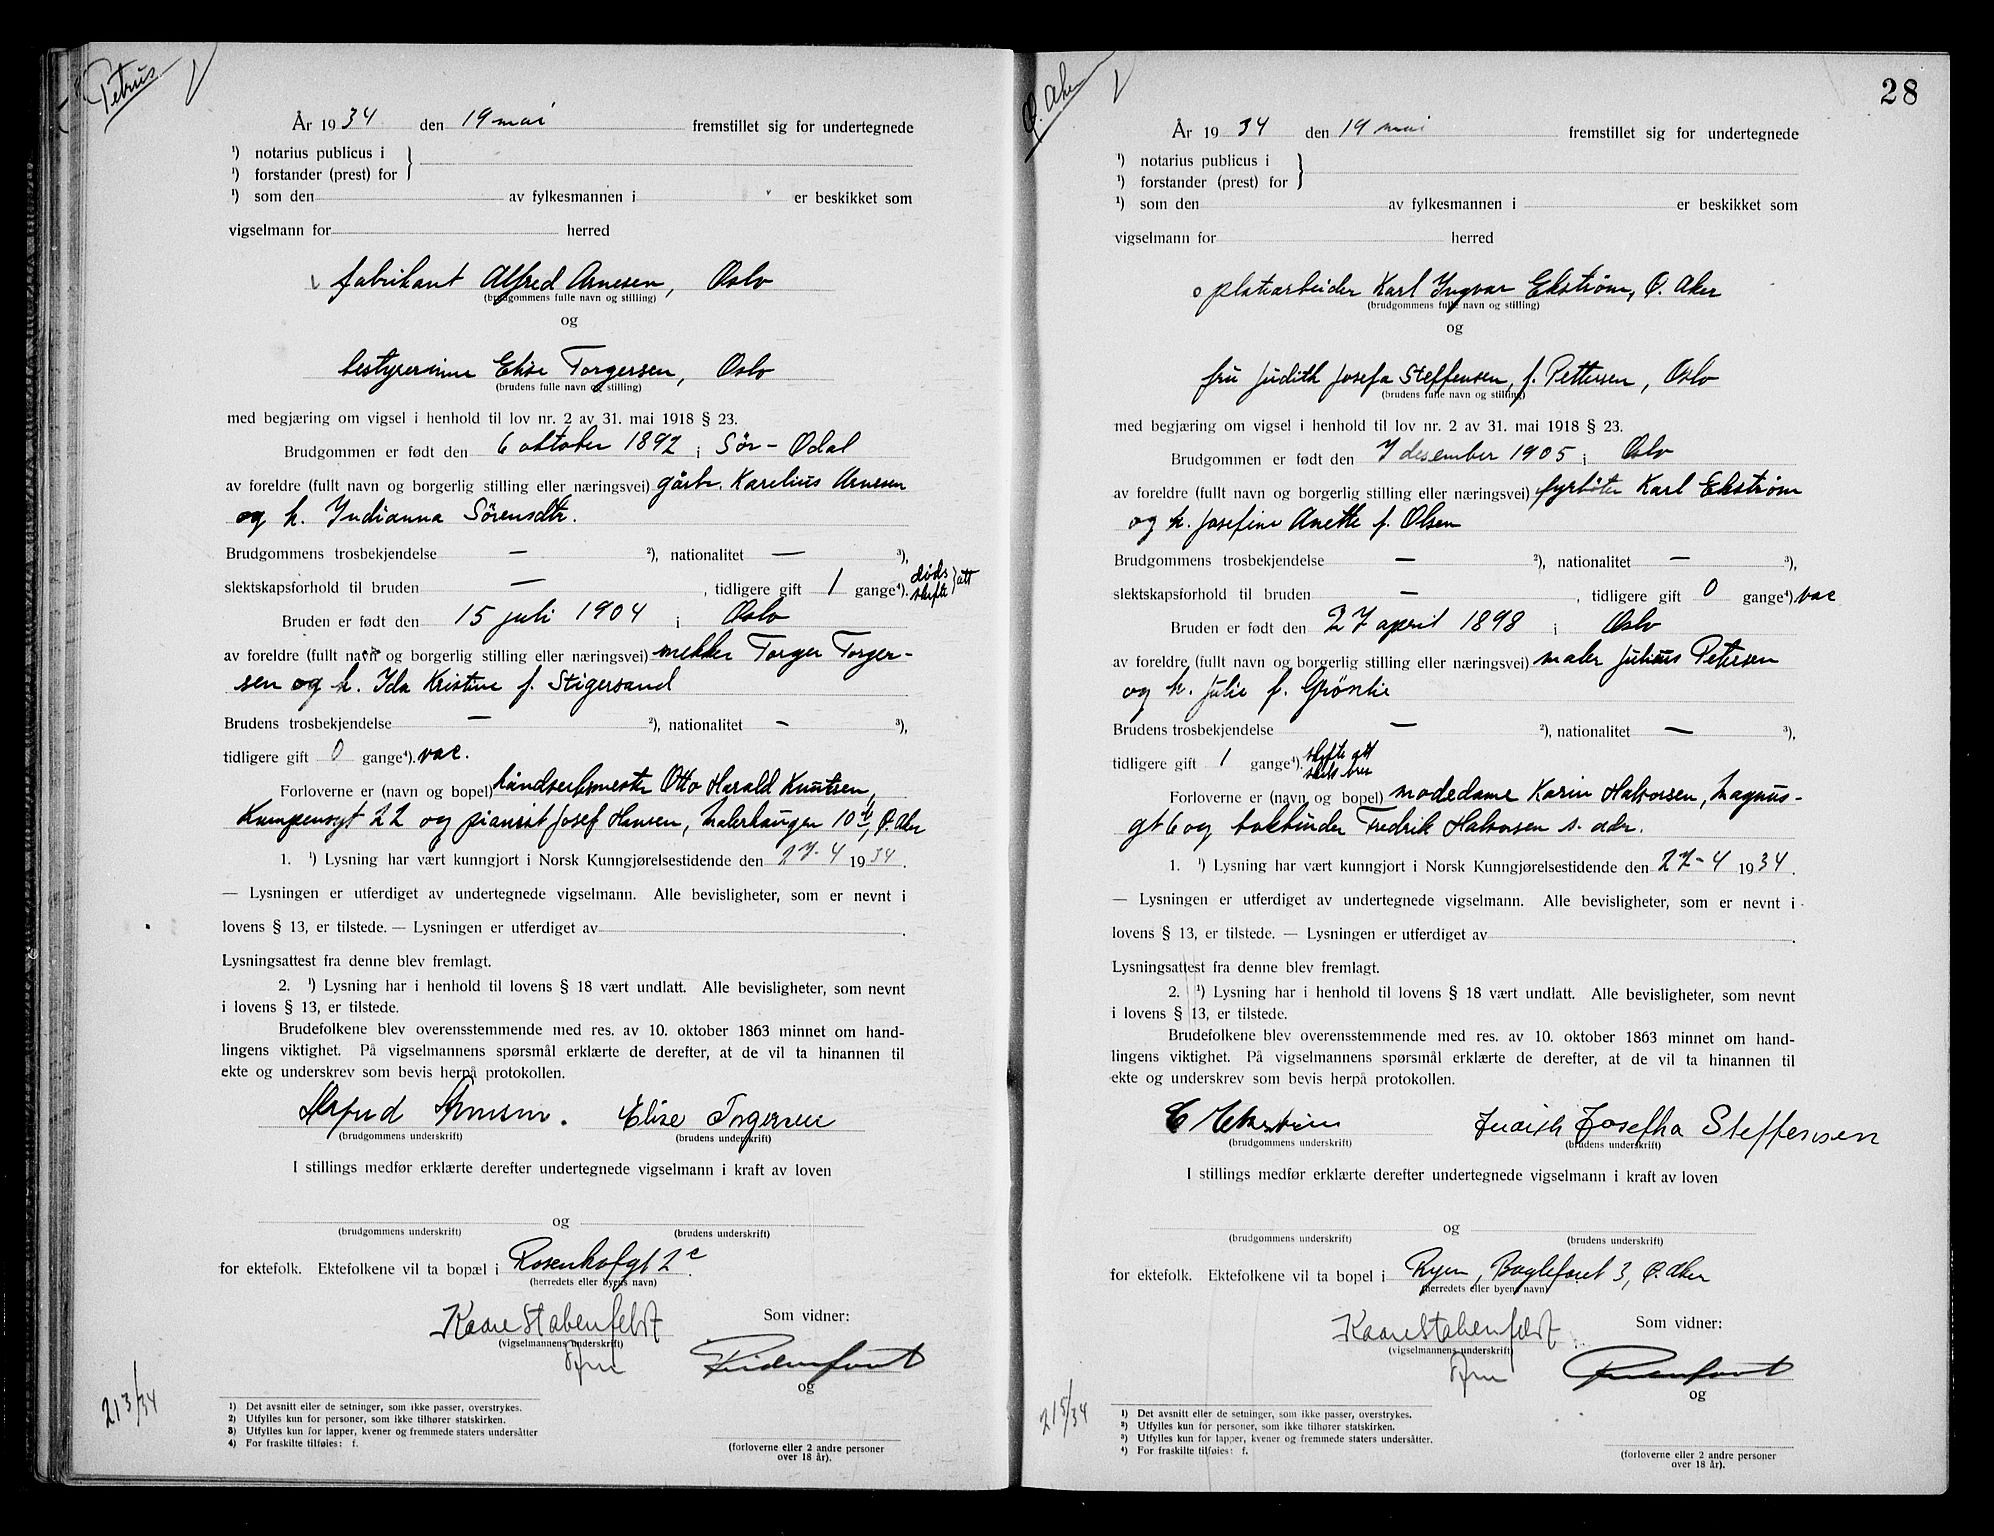 Petrus
År 1934 den 19 mai fremstillet sig for undertegnede
¹) notarius publicus i
¹) forstander (prest) for
¹) som den av fylkesmannen i er beskikket som
vigselmann for herred
fabrikant Alfred Arnesen, Oslo
(brudgommens fulle navn og stilling)
og
bestyrerinne Elise Torgersen, Oslo
(brudens fulle navn og stilling)
med begjæring om vigsel i henhold til lov nr. 2 av 31. mai 1918 § 23.
Brudgommen er født den 6 oktober 1892 i Sør-Odal
av foreldre (fullt navn og borgerlig stilling eller næringsvei) gårbr. Karelius Arnesen
og h. Indianna Sörensdtr.
Brudgommens trosbekjendelse — ²), nationalitet — ³),
slektskapsforhold til bruden — , tidligere gift 1 gange⁴). døds skifte } att
Bruden er født den 15 juli 1904 i Oslo
av foreldre (fullt navn og borgerlig stilling eller næringsvei) mekker Torger Torger-
sen og h. Ida Kristine f. Stigersand
Brudens trosbekjendelse — ²), nationalitet — ³),
tidligere gift 0 gange⁴). vac.
Forloverne er (navn og bopel) håndverksmester Otto Harald Knutsen,
Kampensgt 22 og pianist Josef Hansen, Malerhaugen 10 , Ø. Aker
1. ¹) Lysning har vært kunngjort i Norsk Kunngjørelsestidende den 27-4 1934.
— Lysningen er utferdiget av undertegnede vigselmann. Alle bevisligheter, som er nevnt i
lovens § 13, er tilstede. — Lysningen er utferdiget av .
Lysningsattest fra denne blev fremlagt.
2. ¹) Lysning har i henhold til lovens § 18 vært undlatt. Alle bevisligheter, som nevnt
i lovens § 13, er tilstede.
Brudefolkene blev overensstemmende med res. av 10. oktober 1863 minnet om hand-
lingens viktighet. På vigselmannens spørsmål erklærte de derefter, at de vil ta hinannen til
ekte og underskrev som bevis herpå protokollen.
Alfred Arnesen. Elise Torgersen
(brudgommens underskrift) (brudens underskrift)
I stillings medfør erklærte derefter undertegnede vigselmann i kraft av loven
og
(brudgommens underskrift) (brudens underskrift)
for ektefolk. Ektefolkene vil ta bopæl i Rosenhofgt 2c.
(herredets eller byens navn)
Kaare Stabenfeldt Som vidner:
(vigselmannens underskrift)
og
213/34
1) Det avsnitt eller de setninger, som ikke passer, overstrykes.
2) Utfylles kun for personer, som ikke tilhører statskirken.
3) Utfylles kun for lapper, kvener og fremmede staters undersåtter
4) For fraskilte tilføies: f.
(forloverne eller 2 andre personer
over 18 år).
Ø. Aker
28
År 1934 den 19 mai fremstillet sig for undertegnede
¹) notarius publicus i
¹) forstander (prest) for
¹) som den av fylkesmannen i er beskikket som
vigselmann for herred
platearbeider Karl Ingvar Ekstrøm, Ø. Aker
(brudgommens fulle navn og stilling)
og
fru Judith Josefa Steffensen, f. Pettersen, Oslo
(brudens fulle navn og stilling)
med begjæring om vigsel i henhold til lov nr. 2 av 31. mai 1918 § 23.
Brudgommen er født den 7 desember 1905 i Oslo
av foreldre (fullt navn og borgerlig stilling eller næringsvei) fyrbøter Karl Ekstrøm
og h. Josefine Anette f. Olsen
Brudgommens trosbekjendelse — ²), nationalitet — ³),
slektskapsforhold til bruden — , tidligere gift 0 gange⁴) vac
Bruden er født den 27 april 1898 i Oslo
av foreldre (fullt navn og borgerlig stilling eller næringsvei) maler Julius Petersen
og h. Julie f. Grönlie
Brudens trosbekjendelse — ²), nationalitet — ³),
tidligere gift 1 gange⁴). skifte att skils. brev
Forloverne er (navn og bopel) modedame Karin Halvorsen, Magnus-
gt 6 og bokbinder Fredrik Halvorsen s. adr.
1. ¹) Lysning har vært kunngjort i Norsk Kunngjørelsestidende den 27-4 1934.
— Lysningen er utferdiget av undertegnede vigselmann. Alle bevisligheter, som er nevnt i
lovens § 13, er tilstede. — Lysningen er utferdiget av .
Lysningsattest fra denne blev fremlagt.
2. ¹) Lysning har i henhold til lovens § 18 vært undlatt. Alle bevisligheter, som nevnt
i lovens § 13, er tilstede.
Brudefolkene blev overensstemmende med res. av 10. oktober 1863 minnet om hand-
lingens viktighet. På vigselmannens spørsmål erklærte de derefter, at de vil ta hinannen til
ekte og underskrev som bevis herpå protokollen.
Ekstrøm Judith Josefha Steffensen
(brudgommens underskrift) (brudens underskrift)
I stillings medfør erklærte derefter undertegnede vigselmann i kraft av loven
og
(brudgommens underskrift) (brudens underskrift)
for ektefolk. Ektefolkene vil ta bopel i Ryen, Bogleføret 3, Ø. Aker
(herredets eller byens navn)
Kaare Stabenfeldt Som vidner:
(vigselmannens underskrift)
og
215/34
¹) Det avsnitt eller de setninger, som ikke passer, overstrykes.
²) Utfylles kun for personer, som ikke tilhører statskirken.
³) Utfylles kun for lapper, kvener og fremmede staters undersåtter.
⁴) For fraskilte tilføies: f.
(forloverne eller 2 andre personer
over 18 år).